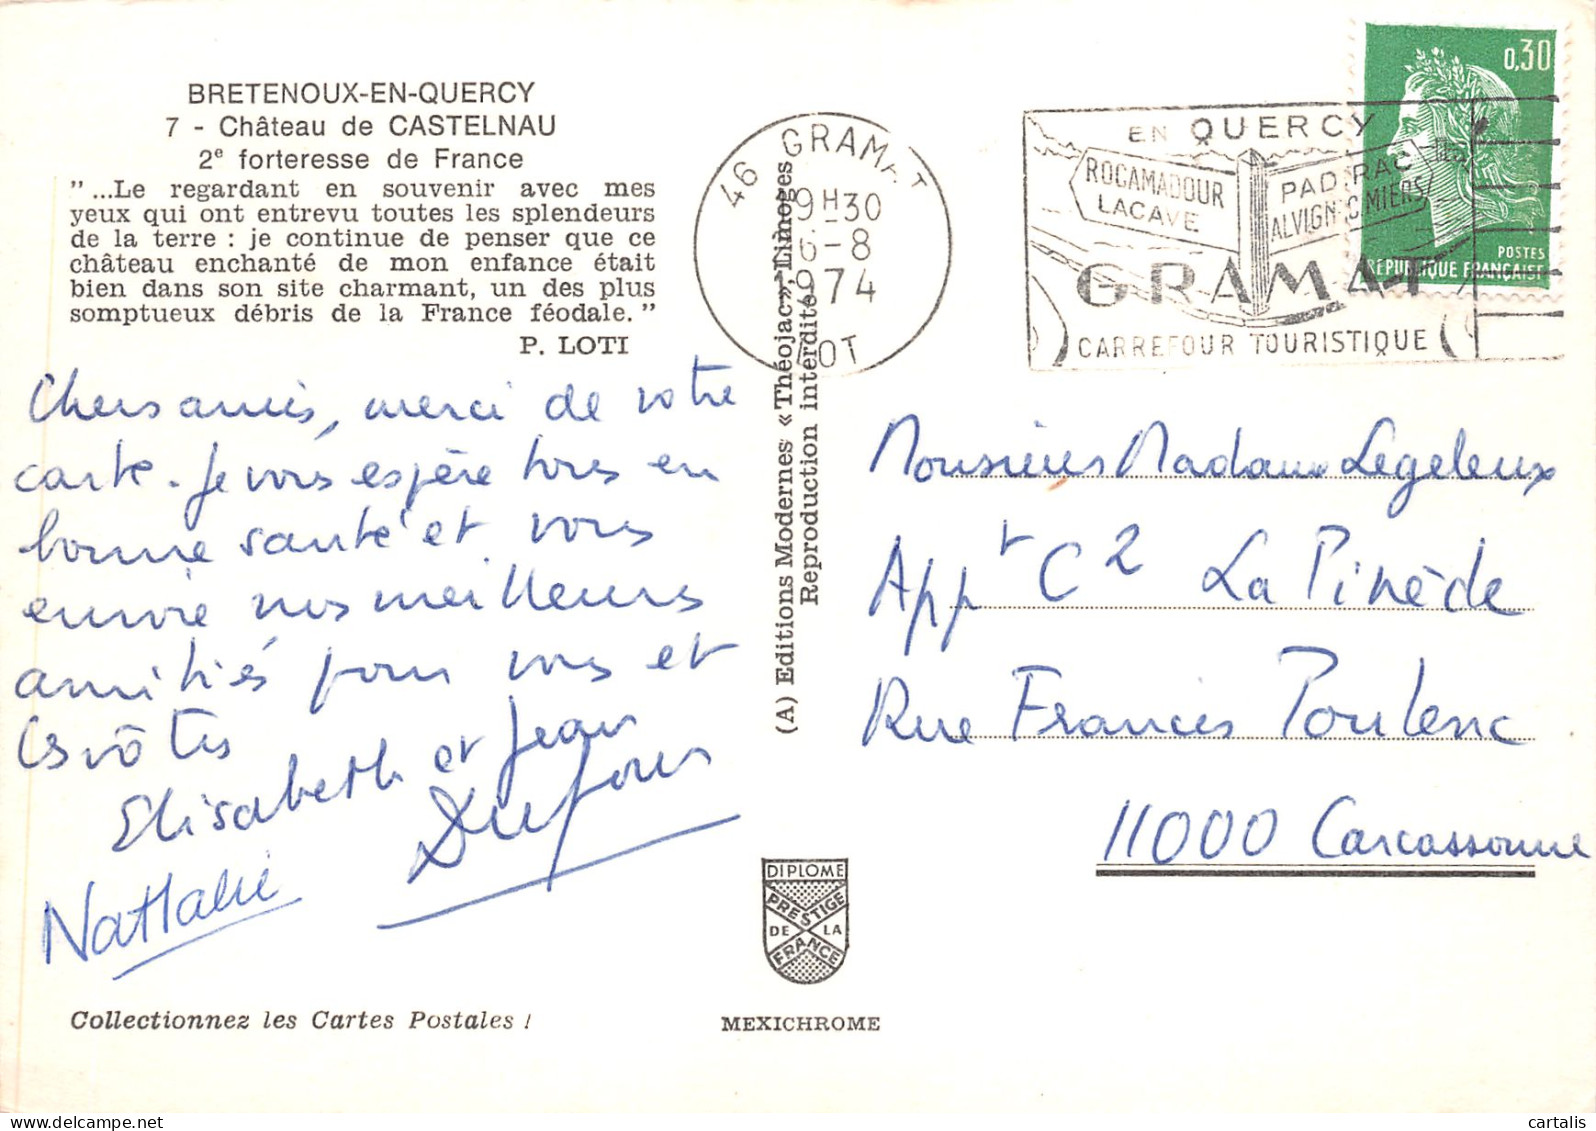 BRETENOUX-EN-QUERCY
7 - Château de CASTELNAU
2e forteresse de France
"...Le regardant en souvenir avec mes
yeux qui ont entrevu toutes les splendeurs
de la terre : je continue de penser que ce
château enchanté de mon enfance était
bien dans son site charmant, un des plus
somptueux débris de la France féodale."
P. LOTI
Chers amis, merci de votre
carte. Je vous espère tous en
bonne santé et vous
envoie nos meilleures
amitiés pour vous et
les vôtres
Elisabeth et Jean
Dufour
Nathalie
Collectionnez les Cartes Postales !
(A) Editions Modernes « Théojac », Limoges
Reproduction interdite
DIPLOME
PRESTIGE
DE LA
FRANCE
MEXICHROME
46 GRAMAT
9H30
6-8
1974
LOT
EN QUERCY
ROCAMADOUR
LACAVE
PADIRAC
ALVIGNAC MIERS
GRAMAT
CARREFOUR TOURISTIQUE
0,30
POSTES
REPUBLIQUE FRANÇAISE
Monsieur Madame Legeleux
Appt C2 La Pinède
Rue Francis Poulenc
11000 Carcassonne
cartalis
delcampe.net